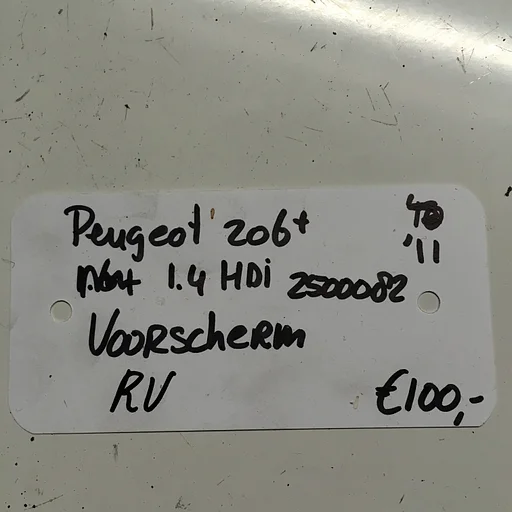 Peugeot 206+
'11
1.4 HDi 2500082
Voorscherm
RV
€100,-